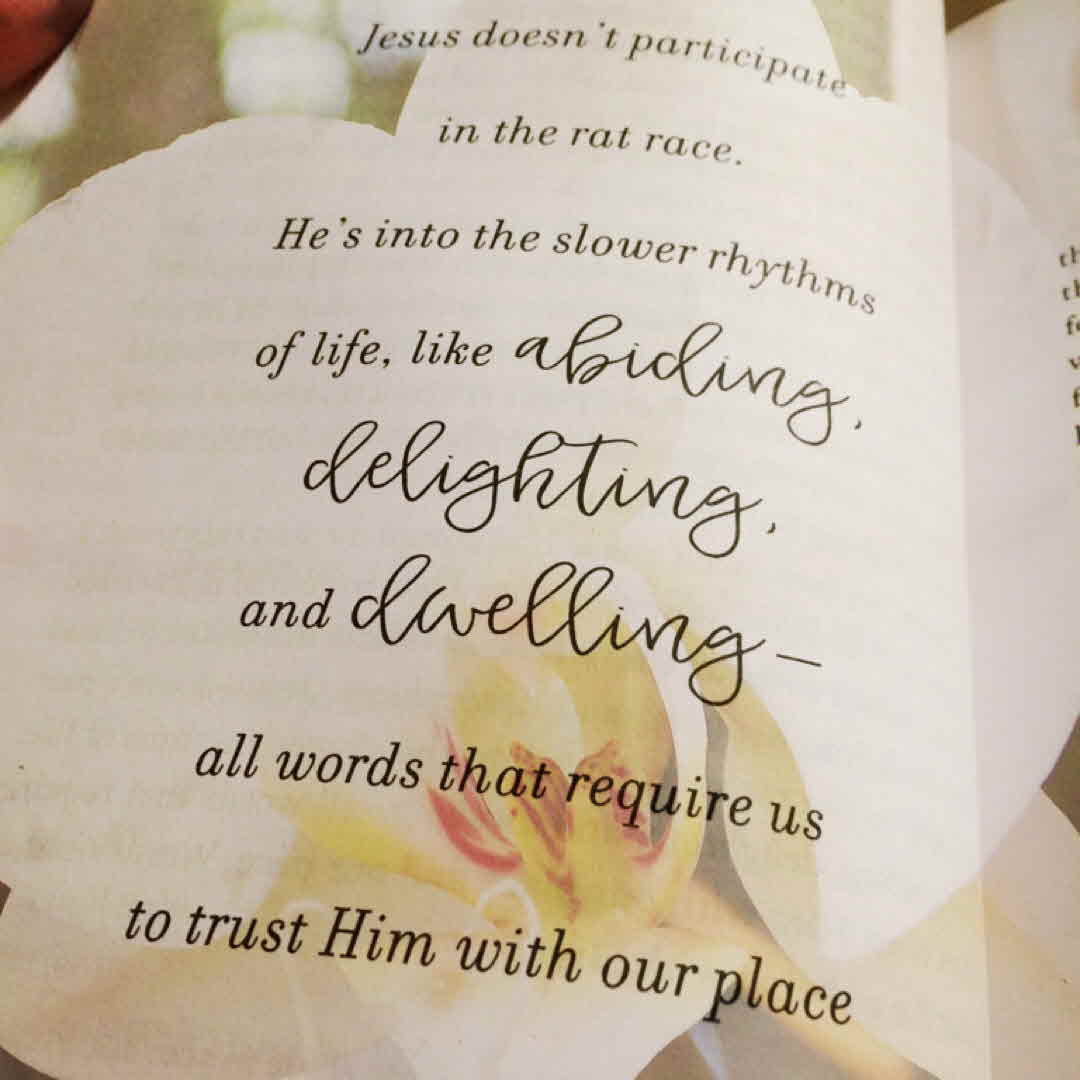 Jesus doesn't participate
in the rat race.
He's into the slower rhythms
of life, like abiding,
delighting,
and dwelling—
all words that require us
to trust Him with our place